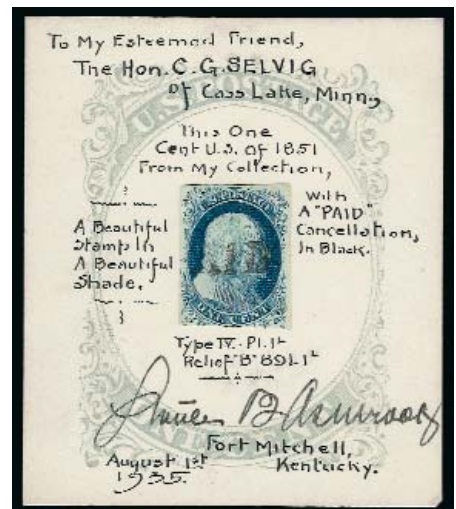 To My Esteemed Friend,
The Hon. C. G. SELVIG
Of Cass Lake, Minn,
U.S. POSTAGE
This One
Cent U.S. of 1851
From My Collection,
A Beautiful
Stamp In
A Beautiful
Shade.
With
A "PAID"
Cancellation,
In Black.
AID
Type IV. - Pl. 1L
Relief "B" 89L1L
Fort Mitchell,
Kentucky.
August 1st
1935.